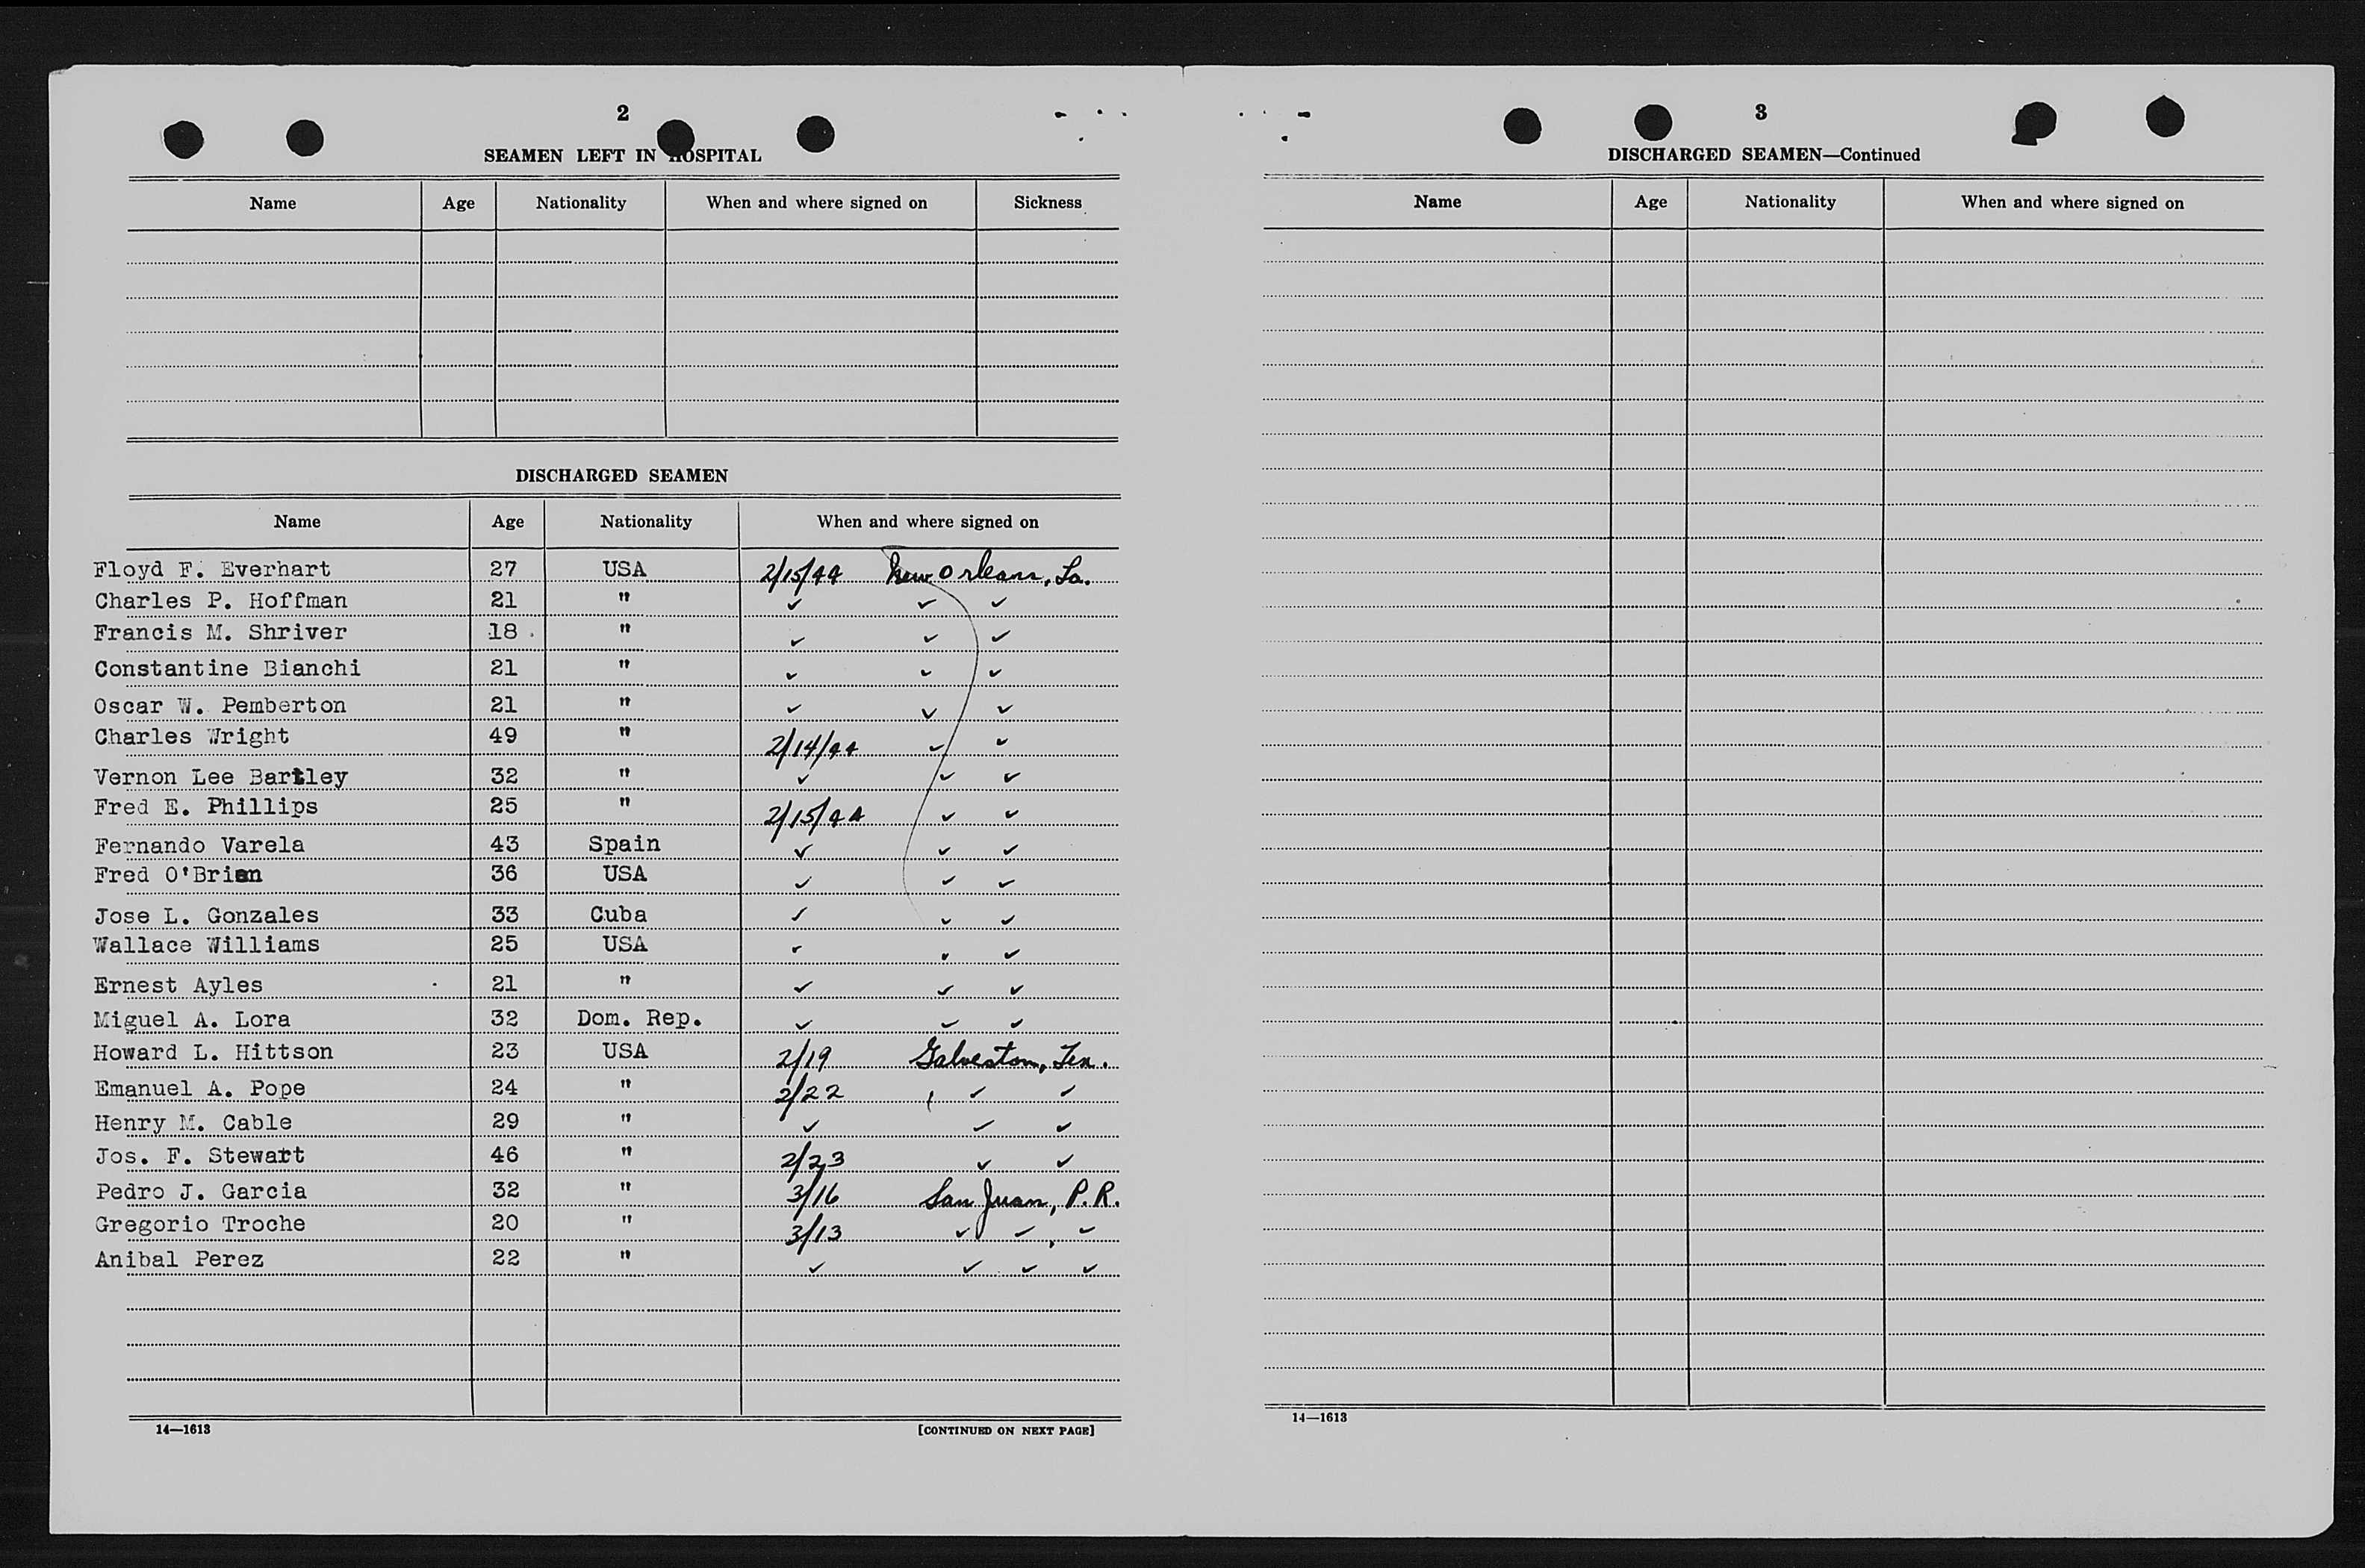 2
SEAMEN LEFT IN HOSPITAL
Name Age Nationality When and where signed on Sickness
DISCHARGED SEAMEN
Name Age Nationality When and where signed on
Floyd F. Everhart 27 USA 2/15/44 New Orleans, La.
Charles P. Hoffman 21 " ✓ ✓ ✓
Francis M. Shriver 18 " ✓ ✓ ✓
Constantine Bianchi 21 " ✓ ✓ ✓
Oscar W. Pemberton 21 " ✓ ✓ ✓
Charles Wright 49 " 2/14/44 ✓ ✓
Vernon Lee Bartley 32 " ✓ ✓ ✓
Fred E. Phillips 25 " 2/15/44 ✓ ✓
Fernando Varela 43 Spain ✓ ✓ ✓
Fred O'Brien 36 USA ✓ ✓ ✓
Jose L. Gonzales 33 Cuba ✓ ✓ ✓
Wallace Williams 25 USA ✓ ✓ ✓
Ernest Ayles 21 " ✓ ✓ ✓
Miguel A. Lora 32 Dom. Rep. ✓ ✓ ✓
Howard L. Hittson 23 USA 2/19 Galveston, Tex.
Emanuel A. Pope 24 " 2/22 ✓ ✓
Henry M. Cable 29 " ✓ ✓ ✓
Jos. F. Stewart 46 " 2/23 ✓ ✓
Pedro J. Garcia 32 " 3/16 San Juan, P.R.
Gregorio Troche 20 " 3/13 ✓ ✓, ✓
Anibal Perez 22 " ✓ ✓ ✓ ✓
14—1613 [CONTINUED ON NEXT PAGE]
3
DISCHARGED SEAMEN—Continued
Name Age Nationality When and where signed on
14—1613